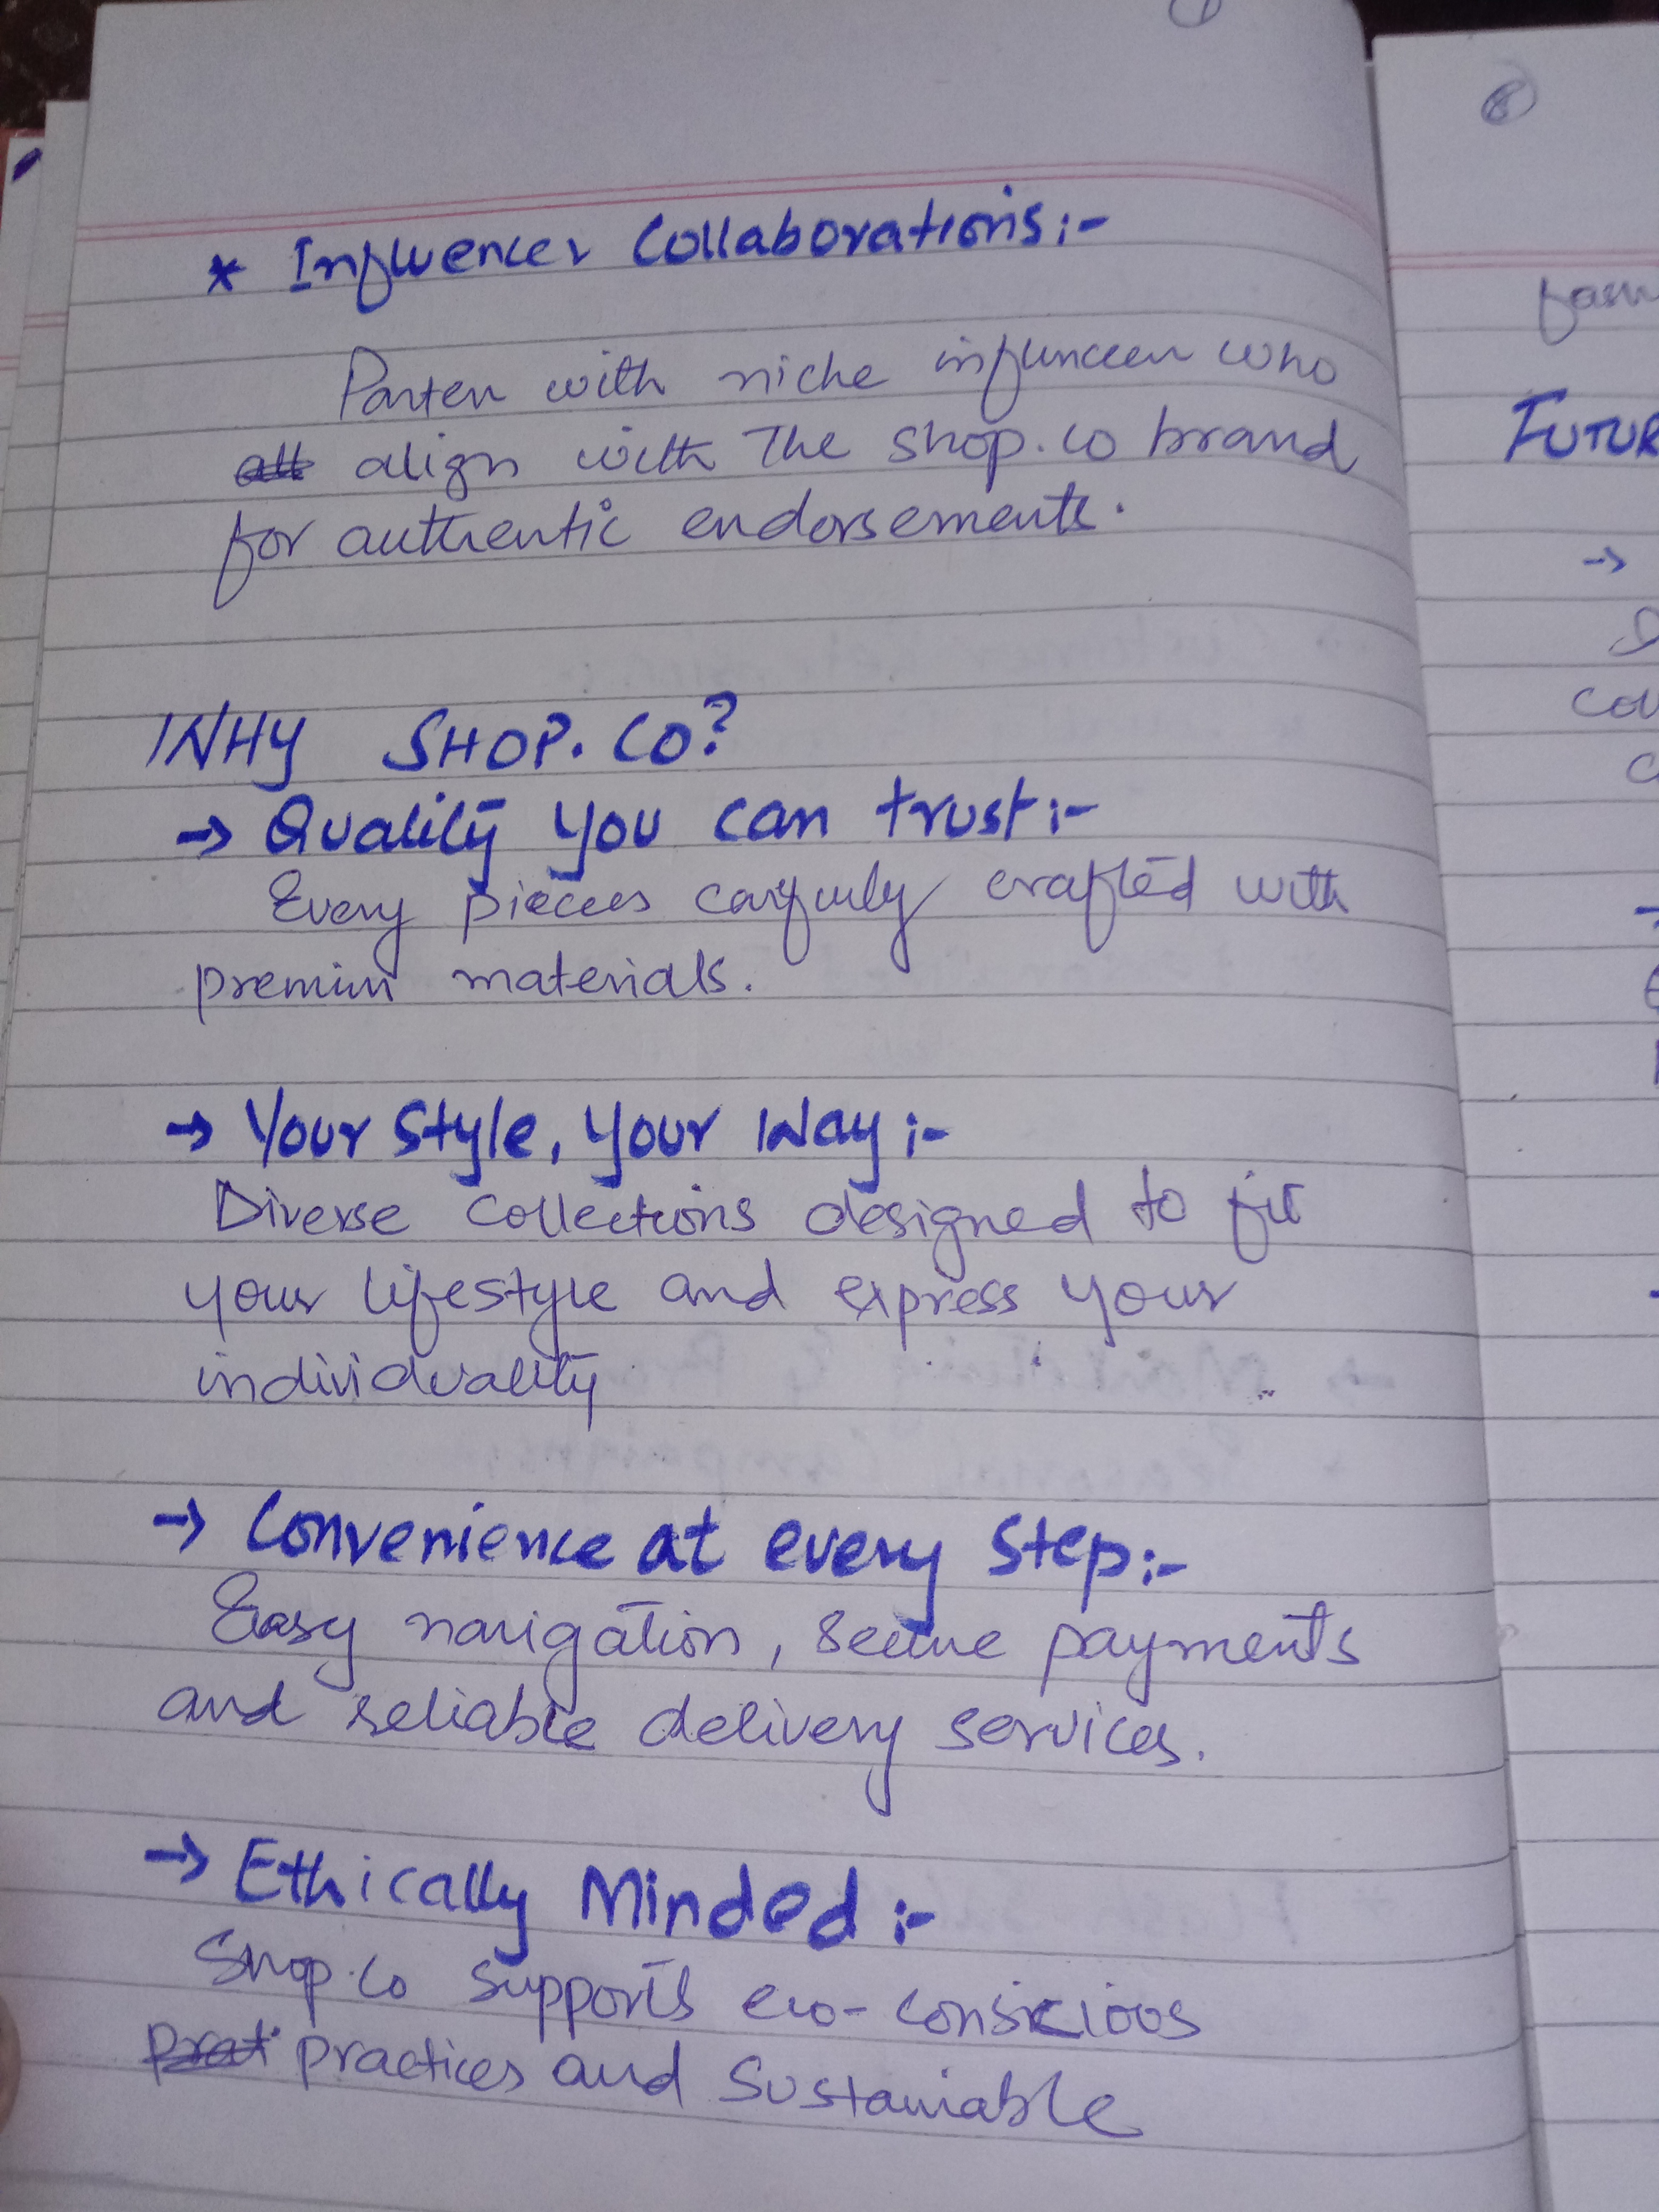 * Influencer Collaborations:-
Parten with niche influnceen who
align with The shop.co brand
for authentic endorsements.
WHY SHOP.CO?
→ Quality you can trust:-
Every pieces carfuly crafted with
premium materials.
→ Your Style, Your Way:-
Diverse collections designed to fit
your lifestyle and express your
individuality
→ Convenience at every Step:-
Easy navigation, secure payments
and reliable delivery services.
→ Ethically Minded:-
Shop.co supports eco-conscious
practices and Sustainable
8
FUTUR
→